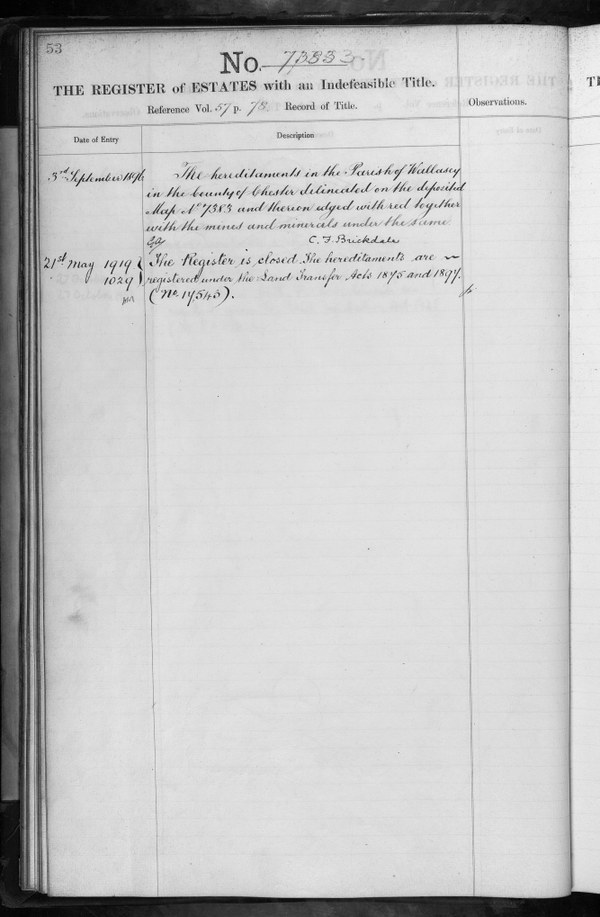 53
No. 7383
THE REGISTER of ESTATES with an Indefeasible Title.
Reference Vol. 57 p. 78 Record of Title.
Observations.
Date of Entry
Description
3rd September 1896
The hereditaments in the Parish of Wallasey
in the County of Chester delineated on the deposited
Map No 7383 and thereon edged with red together
with the mines and minerals under the same.
C. F. Brickdale
21st May 1919
1029
The Register is closed. The hereditaments are
registered under the Land Transfer Acts 1875 and 1897.
(No. 17545).